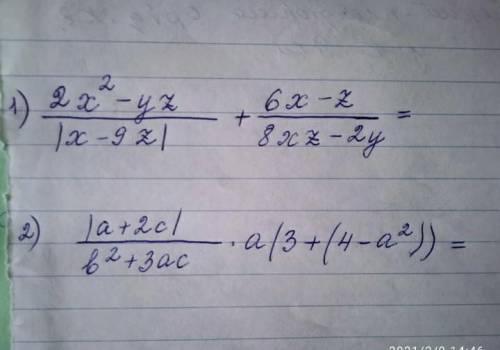 1) (2x² - yz) / |x - 9z| + (6x - z) / (8xz - 2y) =
2) |a + 2c| / (b² + 3ac) · a(3 + (4 - a²)) =